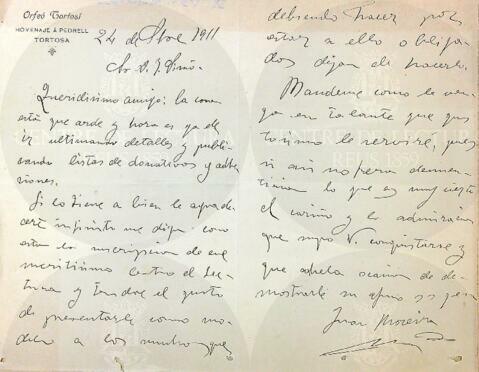 Orfeó Tortosí
HOMENAJE Á PEDRELL
TORTOSA
24 de Sbre 1911
Sr D. J.
Queridisimo amigo: la cosa
está que arde y hora es ya de
ir ultimando detalles y publi-
cando listas de donativos y adhe-
siones.
Si lo tiene a bien le agrade-
ceré infinito me diga como
está la inscripcion de ese
meritisimo Centro de Lec-
tura y tendré el gusto
de presentarle como mo-
delo a los muchos que
debiendo hacer por
estar a ello obliga-
dos dejan de hacerlo.
Mandeme como le ven-
ga en talante que gus-
tosisimo le serviré, pues
si asi no fuera desmen-
tiria lo que es muy cierto
el cariño y la admiracion
que supo V. conquistarse y
que anhela ocasion de de-
mostrarle su afmo ss
Juan Moreira
CENTRE DE LECTURA
REUS 1859